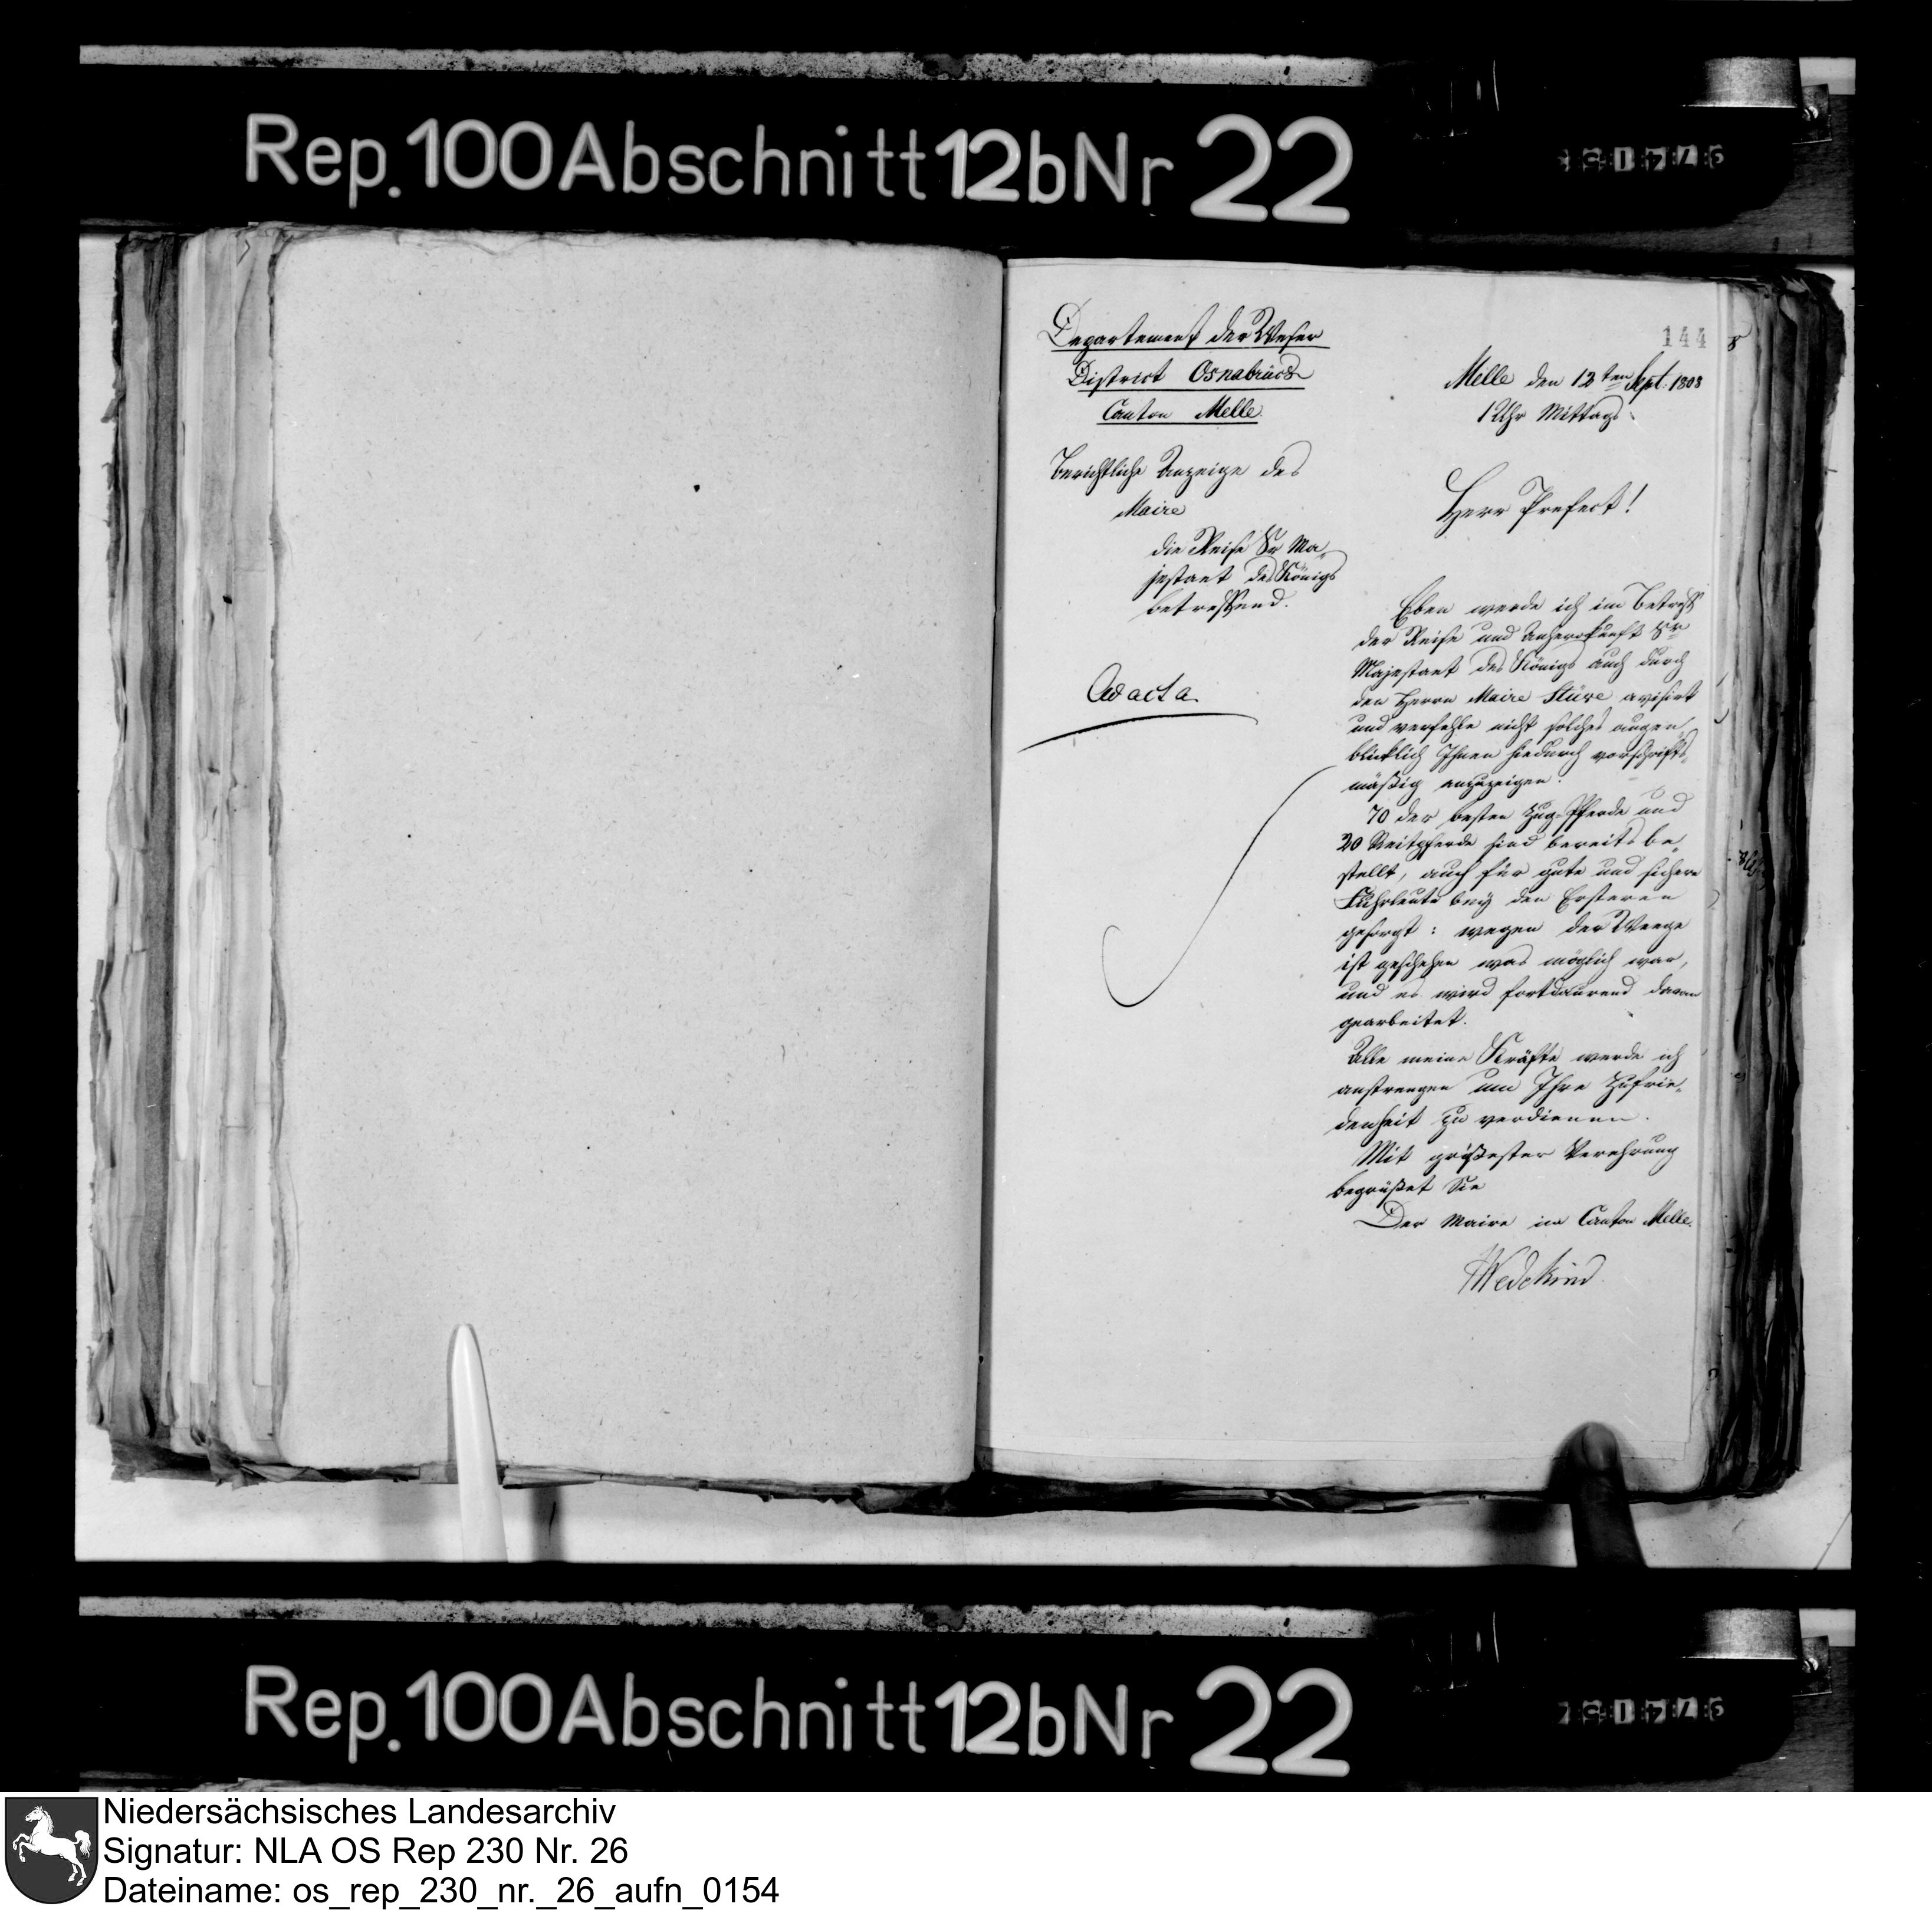 Rep. 100 Abschnitt 12b Nr 22
144
Departement der Weser
District Osnabrück
Canton Melle
Berichtliche Anzeige des
Maire
die Reise Sr Ma-
jestaet des Königs
betreffend.
Ad acta
Melle den 12ten Sept. 1808
1 Uhr Mittags.
Herr Prefect!
Eben werde ich im Betreff
der Reise und Anherokunft Sr
Majestaet des Königs auch durch
den Herrn Maire Stüve avisirt
und verfehle nicht solches augen-
blicklich Ihnen hiedurch vorschrifts-
mäßig anzuzeigen.
70 der besten Zug-Pferde und
20 Reitpferde sind bereits be-
stellt, auch für gute und sichere
Fuhrleute bey den Ersteren
gesorgt: wegen der Weege
ist geschehen was möglich war,
und es wird fortdaurend daran
gearbeitet.
Alle meine Kräfte werde ich
anstrengen um Ihre Zufrie-
denheit zu verdienen.
Mit größester Verehrung
begrüßet Sie
Der Maire im Canton Melle.
Wedekind
Rep. 100 Abschnitt 12b Nr 22
Niedersächsisches Landesarchiv
Signatur: NLA OS Rep 230 Nr. 26
Dateiname: os_rep_230_nr._26_aufn_0154